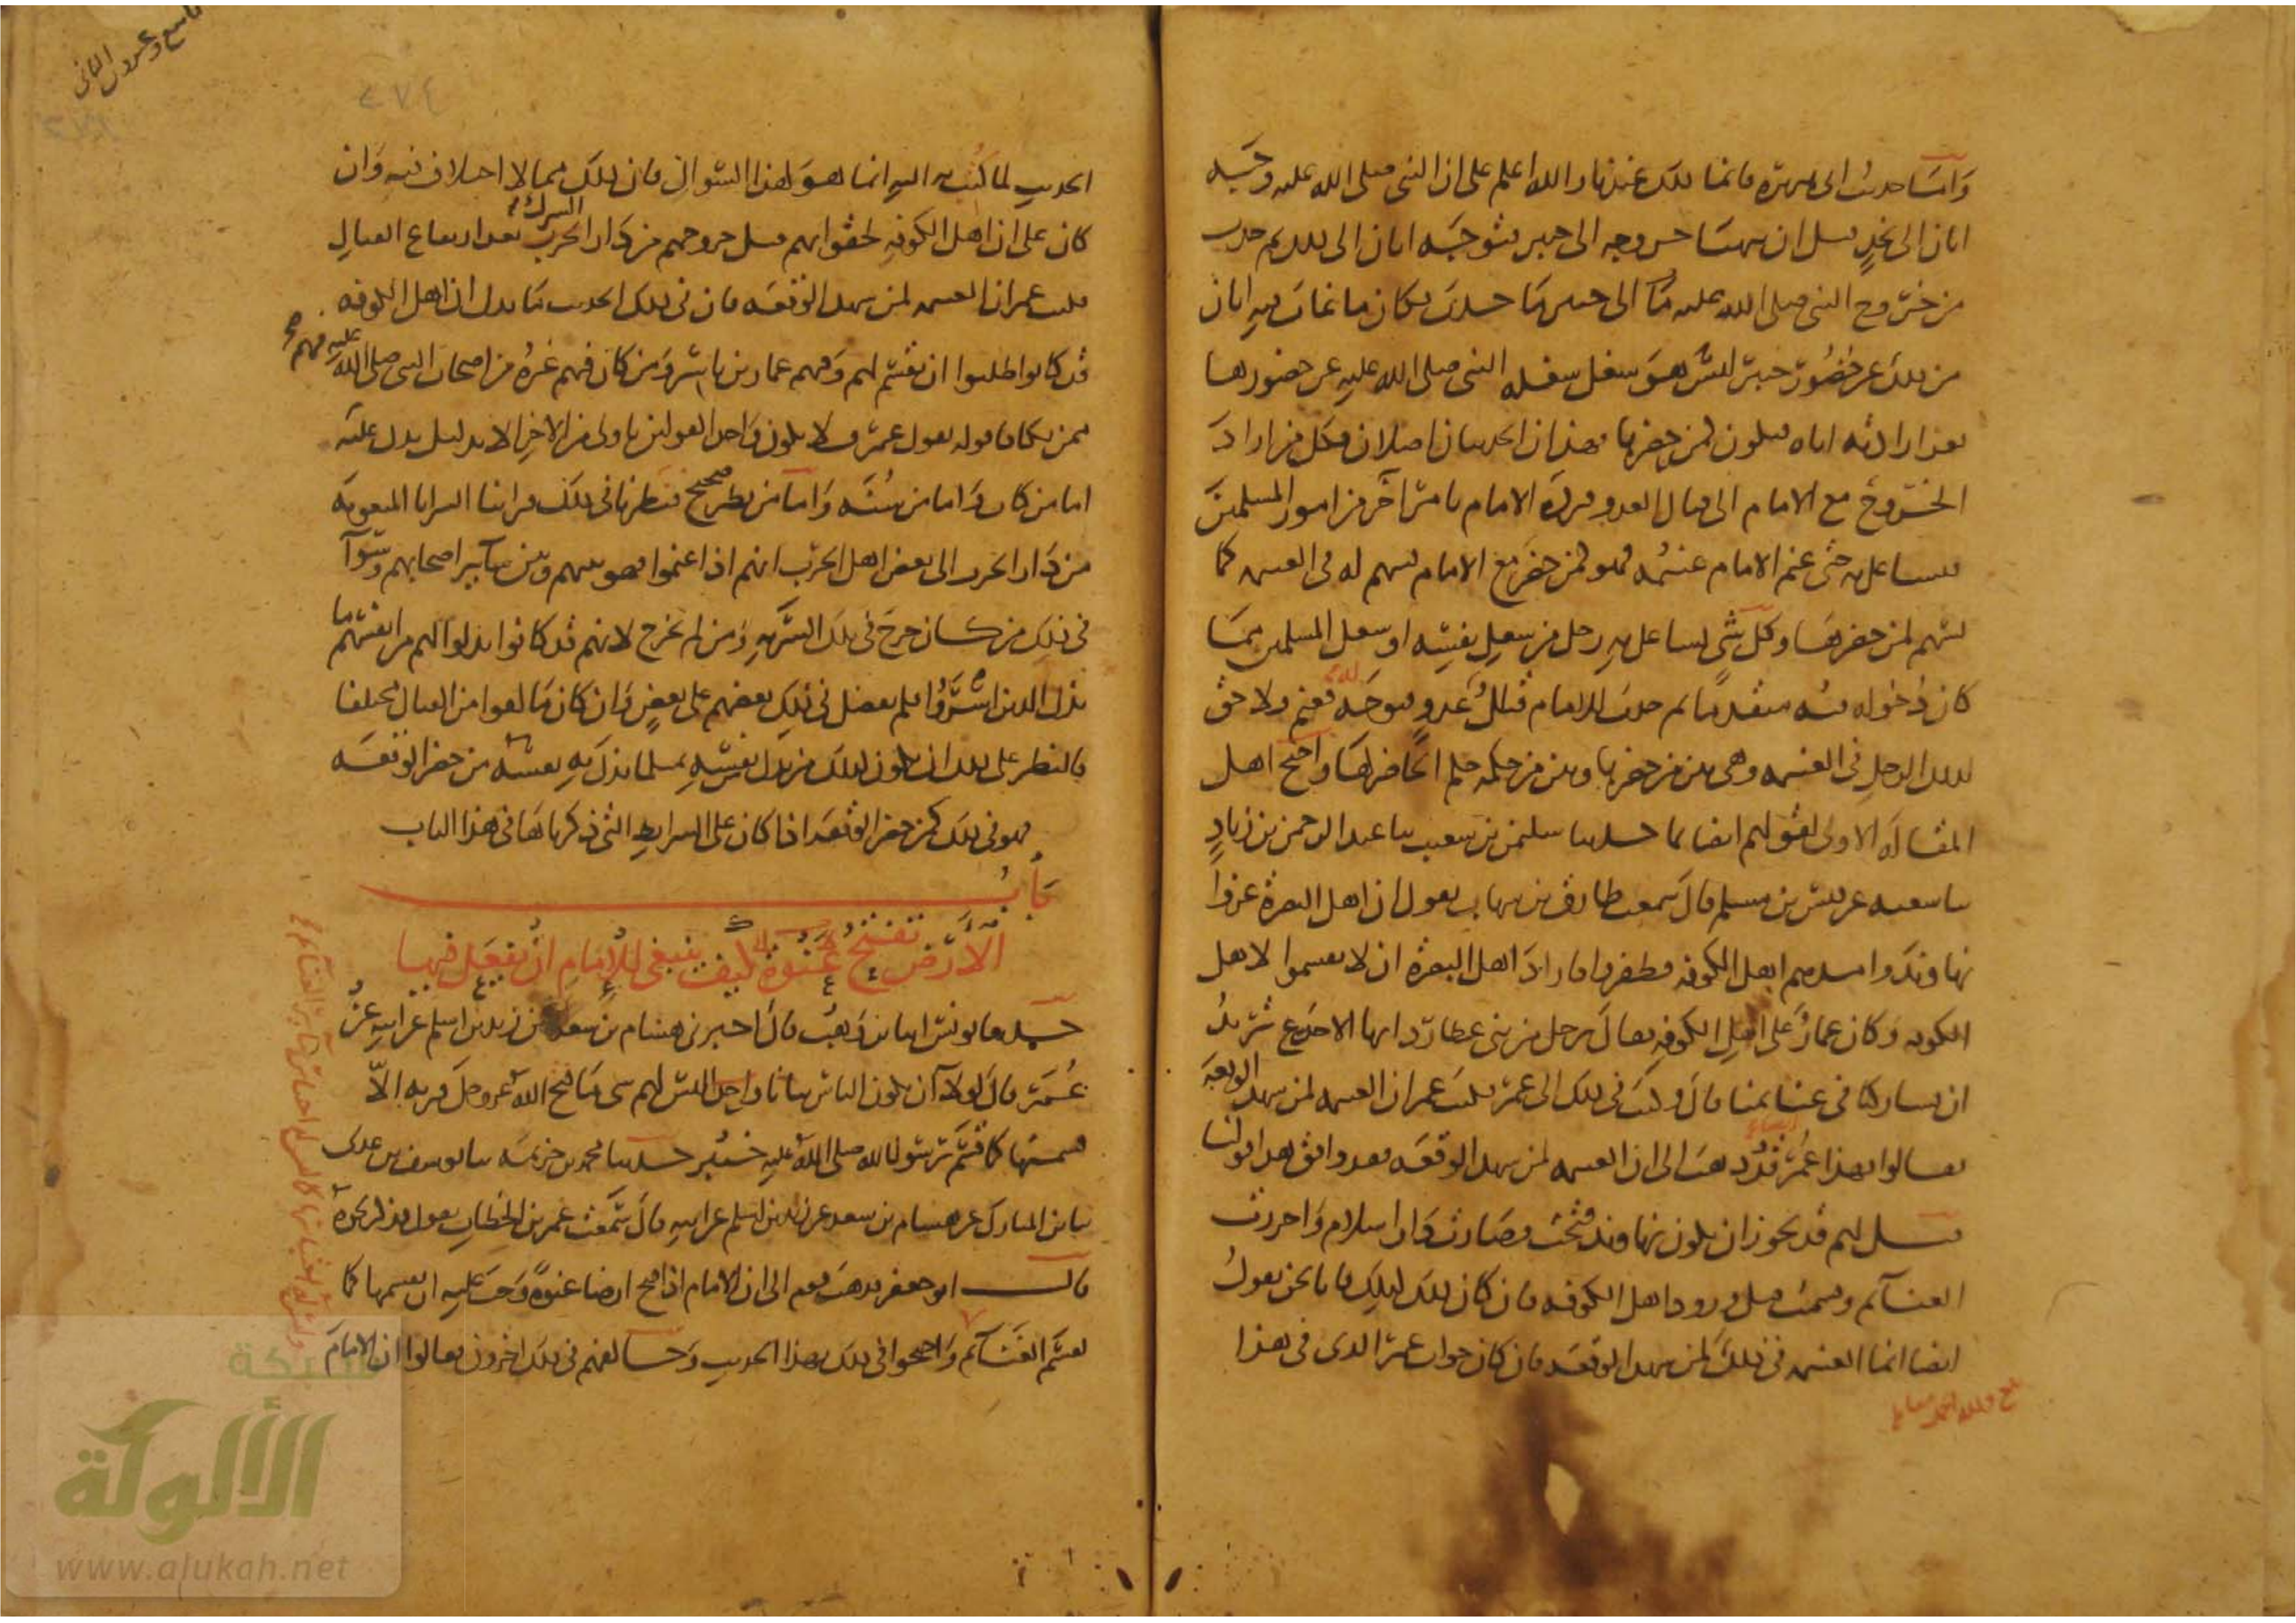 وأما حديث ابى هريرة فانما ذلك عندنا والله اعلم على ان النبى صلى الله عليه وجه
ابان الى نجد قبل ان يتهيأ خروجه الى خيبر فتوجه ابان الى ذلك ثم حدث
من خروج النبى صلى الله عليه وسلم الى خيبر ما حدث فكان ما غاب فيه ابان
من ذلك عن حضور خيبر ليس هو شغل شغله النبى صلى الله عليه عن حضورها
بعد ارادته اياه فيكون كمن حضرها فهذان الحديثان اصلان فكل من اراد
الخروج مع الامام الى قتال العدو فرده الامام بامر آخر من امور المسلمين
فتشاغل به حتى غنم الامام غنيمة فهو كمن حضر مع الامام يسهم له فى الغنيمة كما
يسهم لمن حضرها وكل شى تشاغل به رجل من شغل نفسه او شغل المسلمين مما
كان دخوله فيه متقدما ثم حدث للامام قتال عدو فتوجه له فغنم فلا حق
لذلك الرجل فى الغنيمة وهى بين من حضرها وبين من حكمه حكم الحاضر لها واحتج اهل
المقالة الاولى لقولهم ايضا بما حدثنا سليمن بن شعيب ثنا عبد الرحمن بن زياد
ثنا شعبة عن قيس بن مسلم قال سمعت طارق بن شهاب يقول ان اهل البصرة غزوا
نهاوند وامدهم اهل الكوفة فظفروا فاراد اهل البصرة ان لا يقسموا لاهل
الكوفة وكان عمار على اهل الكوفة فقال رجل من بنى عطارد ايها الاجدع تريد
ان تشاركنا فى غنائمنا قال وكتب فى ذلك الى عمر فكتب عمر ان الغنيمة لمن شهد الوقعة
فقالوا فهذا عمر قد ذهب الى ان الغنيمة لمن شهد الوقعة فقد وافق هذا قولنا
قيل لهم قد يجوز ان يكون نهاوند فتحت وصارت دار اسلام واحرزت
الغنائم وقسمت قبل ورود اهل الكوفة فان كان ذلك كذلك فانا نحن نقول
ايضا انما الغنيمة فى ذلك لمن شهد الوقعة فان كان جواب عمر الذى فى هذا
الحديث لما كتب به اليه انما هو لهذا السوال فان ذلك مما لا اختلاف فيه وان
كان على ان اهل الكوفة لحقوا بهم قبل خروجهم من دار الحرب بعد ارتفاع القتال
الشرك
فكتب عمر ان الغنيمة لمن شهد الوقعة فان فى ذلك الحديث ما يدل ان اهل الكوفة
قد كانوا طلبوا ان يقسم لهم وفيهم عمار بن ياسر ومن كان فيهم غيره من اصحاب النبى صلى الله عليه فهم
ممن يكافا قوله بقول عمر فلا يكون واحد القولين باولى من الاخر الا بدليل يدل عليه
اما من كتاب واما من سنة واما من نظر صحيح فنظرنا فى ذلك فراينا السرايا المبعوثة
من دار الحرب الى بعض اهل الحرب انهم اذا غنموا فهو بينهم وبين سائر اصحابهم وسوآ
فى ذلك من كان خرج فى تلك السرية ومن لم يخرج لانهم قد كانوا بذلوا لهم من انفسهم ما
بذل الذين اسروا فلم يفضل فى ذلك بعضهم على بعض وان كان ما لقوا من القتال مختلفا
فالنظر على ذلك ان يكون كذلك من بذل نفسه بمثل ما بذل به نفسه من حضر الوقعة
فهو فى ذلك كمن حضر الوقعة اذا كان على الشرايط التى ذكرناها فى هذا الباب
باب
الأرض تفتتح عنوة كيف ينبغى للإمام أن يفعل فيها
حدثنا يونس انا ابن وهب قال اخبرنى هشام بن سعد عن زيد بن اسلم عن ابيه عن
عمر قال لولا أن يكون الناس ببانا واحدا ليس لهم شى ما فتح الله عز وجل قرية إلا
قسمتها كما قسم رسول الله صلى الله عليه خيبر حدثنا محمد بن خزيمة ثنا يوسف بن عدى
ثنا ابن المبارك عن هشام بن سعد عن زيد بن اسلم عن ابيه قال سمعت عمر بن الخطاب يقول فذكر نحوه
قال ابو جعفر فذهب قوم الى ان الامام اذا فتح ارضا عنوة وجب عليه ان يقسمها كما
يقسم الغنائم واحتجوا فى ذلك بهذا الحديث وخالفهم فى ذلك اخرون فقالوا ان الامام
شبكة
الألوكة
www.alukah.net